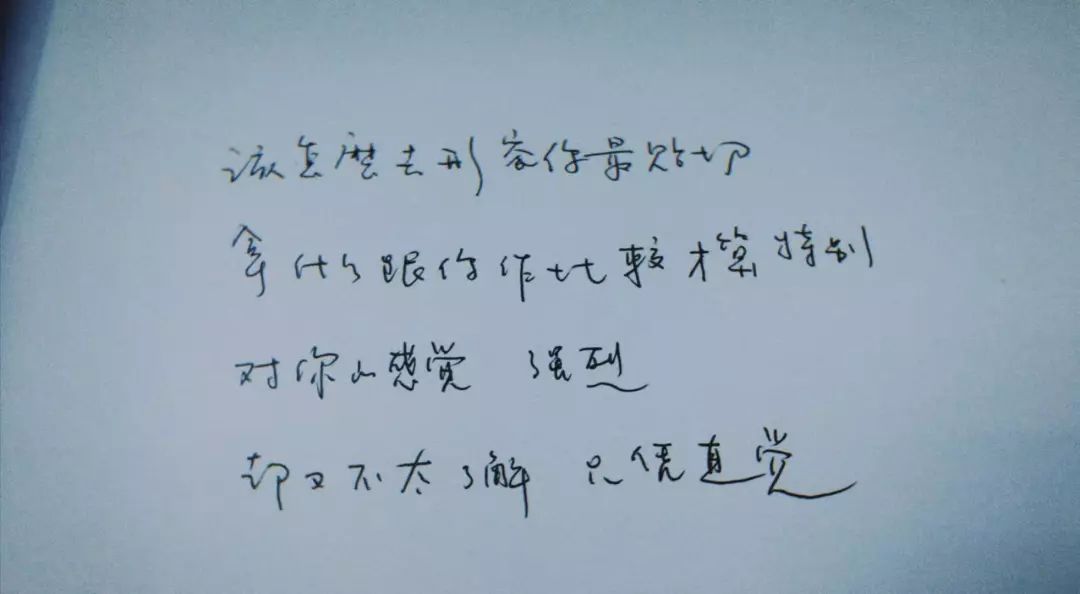 该怎麽去形容你最贴切
拿什么跟你作比较才算特别
对你的感觉 强烈
却又不太了解 只凭直觉